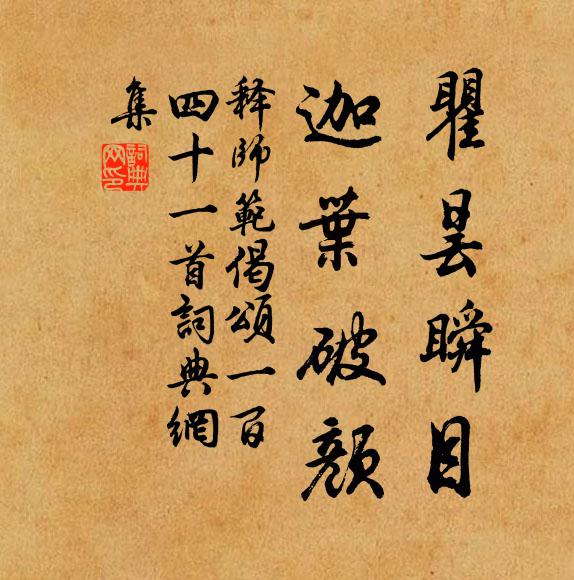 瞿曇瞬目
迦葉破顏
释師範偈頌一百
四十一首詞典網
集
詞典網印